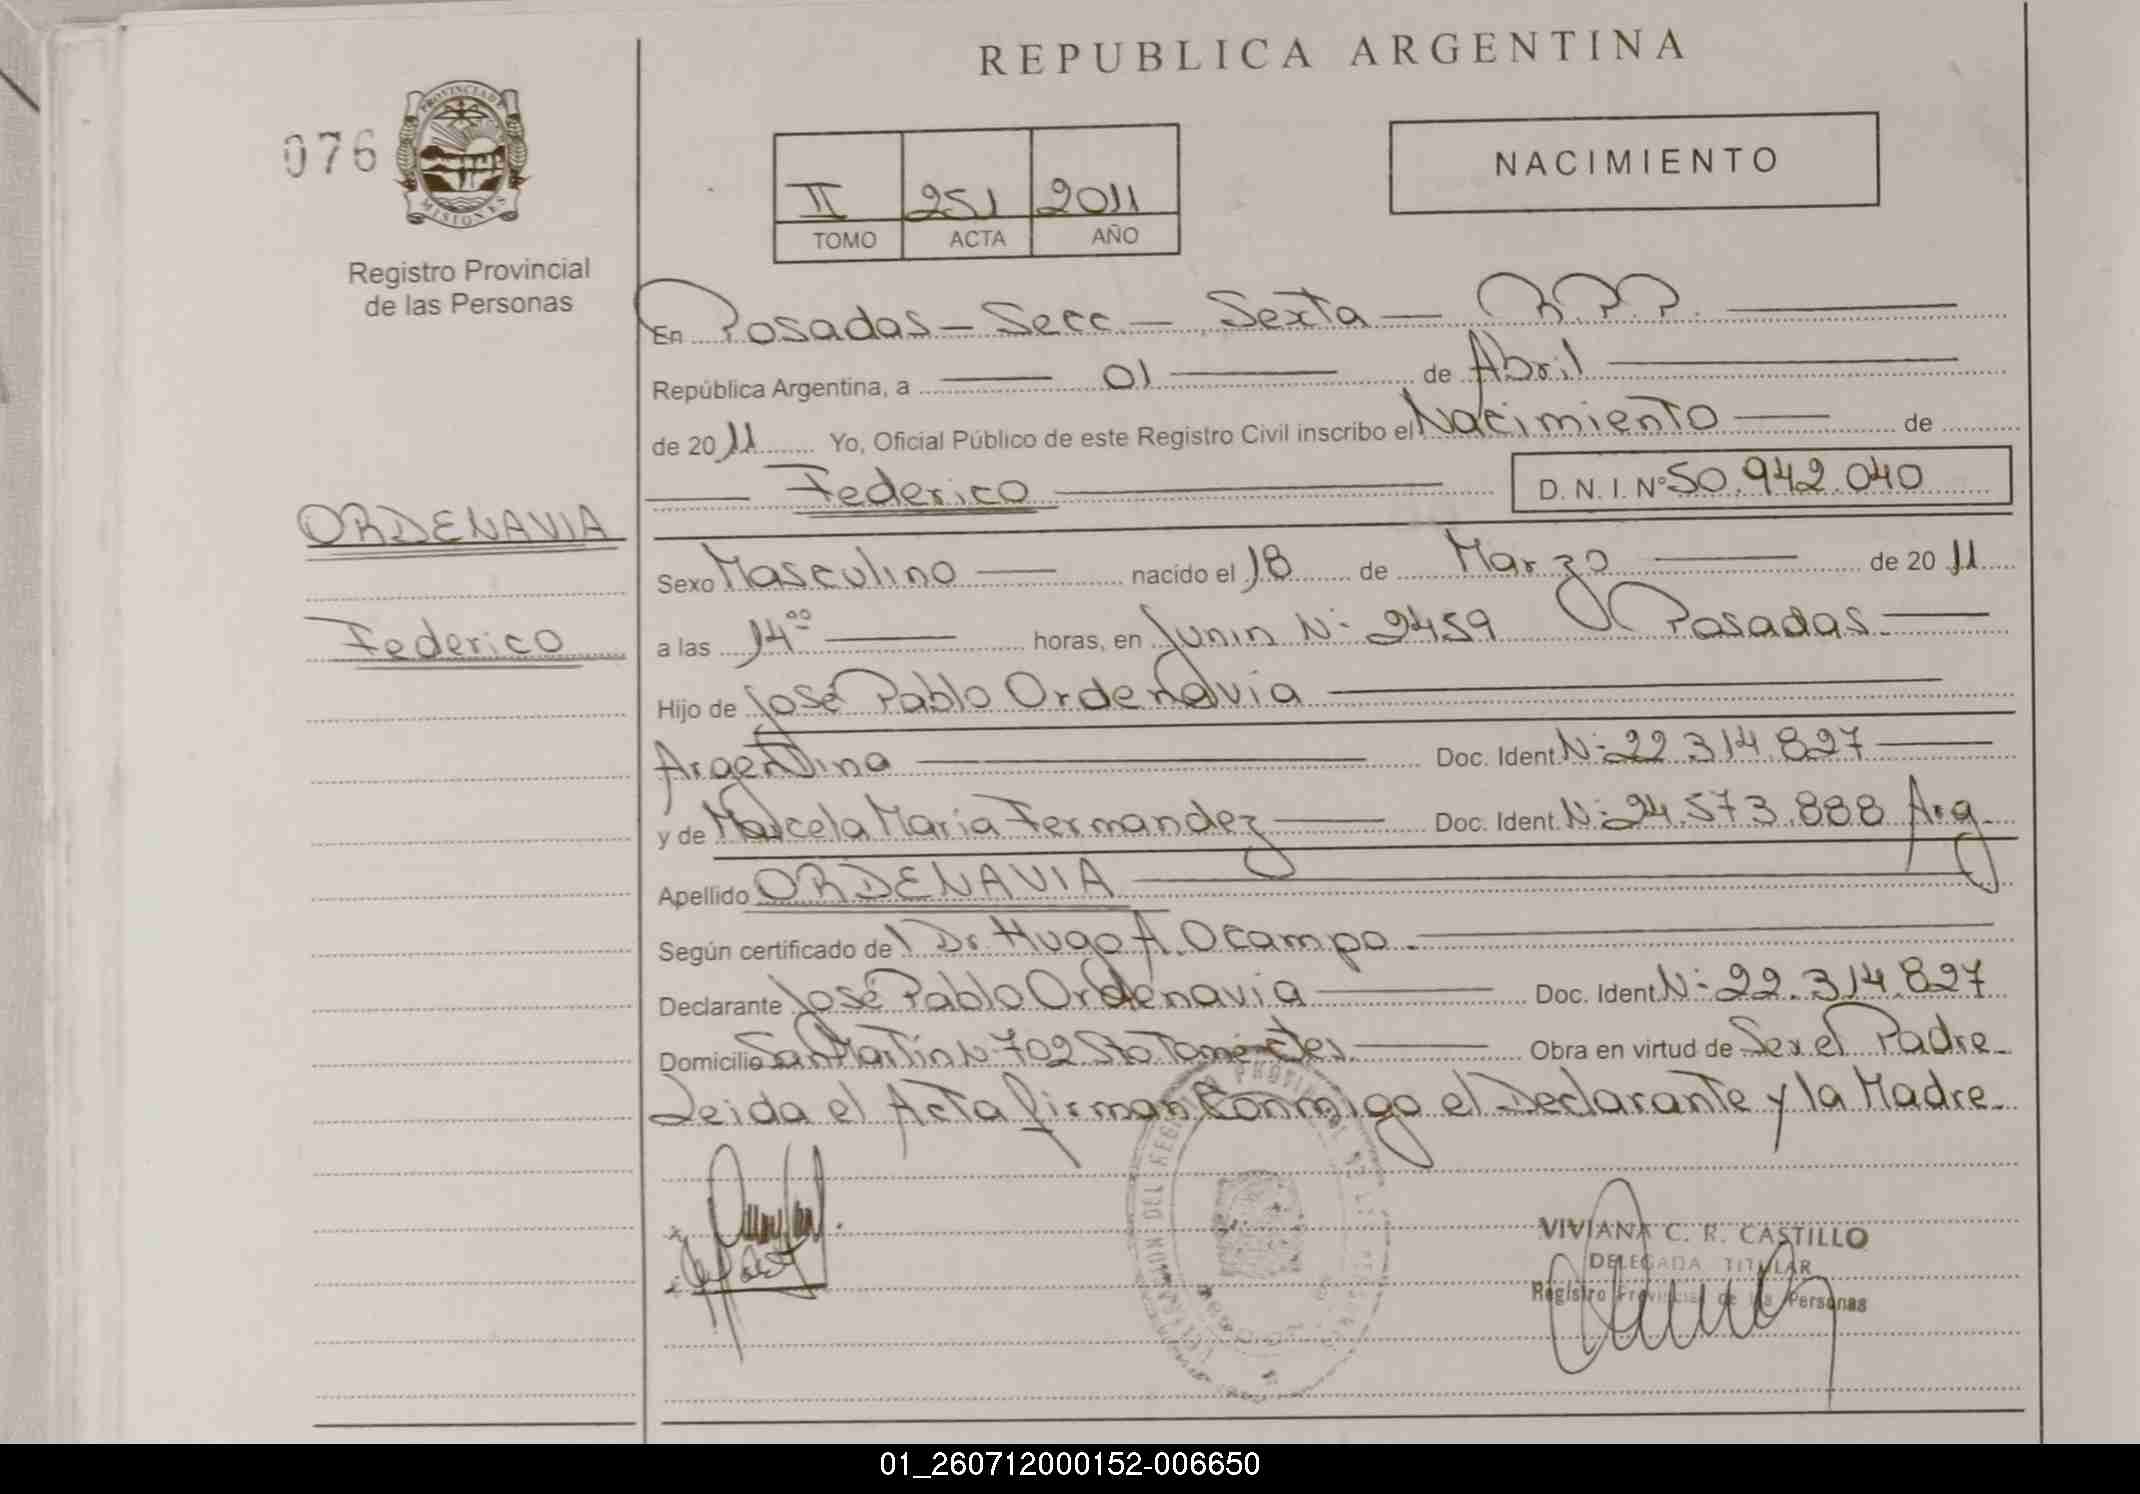 REPUBLICA ARGENTINA
076
PROVINCIA DE
MISIONES
Registro Provincial
de las Personas
NACIMIENTO
II 251 2011
TOMO ACTA AÑO
En Posadas - Secc - Sexta - R.P.P.
República Argentina, a 01 de Abril
de 2011 Yo, Oficial Público de este Registro Civil inscribo el Nacimiento de
Federico D. N. I. Nº 50.942.040
ORDENAVIA
Federico
Sexo Masculino nacido el 18 de Marzo de 2011
a las 14 00 horas, en Junin Nº 2459 Posadas
Hijo de José Pablo Ordenavia
Argentina Doc. Ident. Nº 22.314.827
y de Marcela Maria Fernandez Doc. Ident. Nº 24.573.888 Arg.
Apellido ORDENAVIA
Según certificado de l Dr. Hugo A. Ocampo.
Declarante José Pablo Ordenavia Doc. Ident. Nº 22.314.827
Domicilio San Martin Nº 702 Sto Tomé Ctes. Obra en virtud de Ser el Padre
Leida el Acta firman Conmigo el Declarante y la Madre
VIVIANA C. R. CASTILLO
DELEGADA TITULAR
Registro Provincial de las Personas
01_260712000152-006650